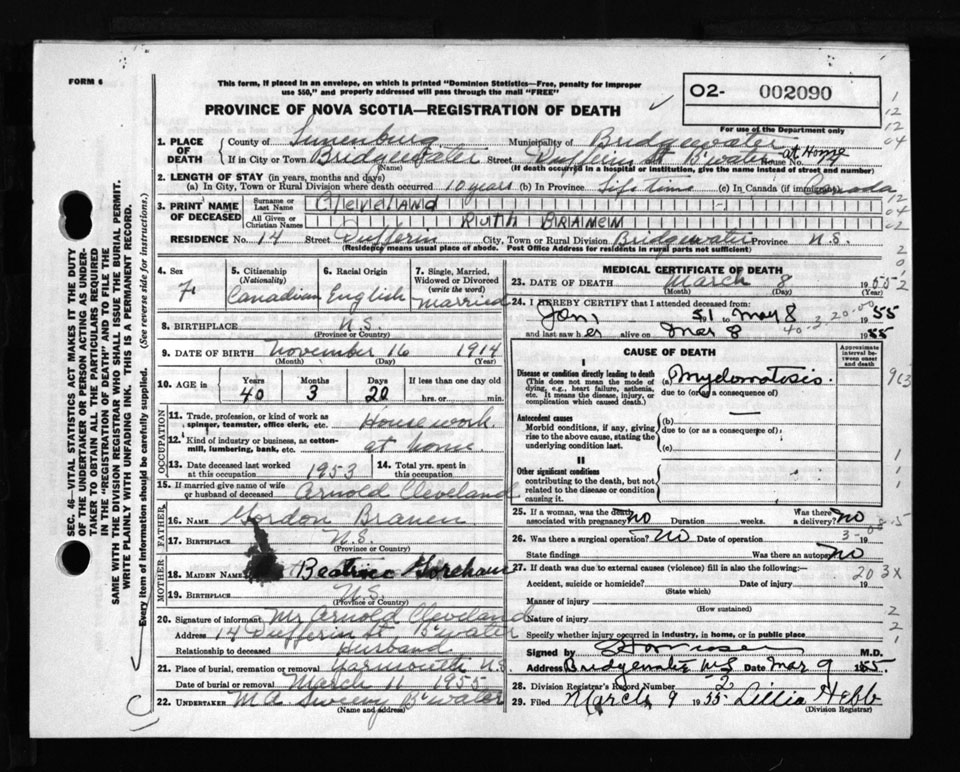 FORM 6
This form, if placed in an envelope, on which is printed "Dominion Statistics—Free, penalty for improper
use $50," and properly addressed will pass through the mail "FREE"
O2- 002090
PROVINCE OF NOVA SCOTIA—REGISTRATION OF DEATH
For use of the Department only
1. PLACE OF DEATH County of Lunenburg Municipality of Bridgewater
If in City or Town Bridgewater Street Dufferin St B'water House No. at Home
(Name) (If death occurred in a hospital or institution, give the name instead of street and number)
2. LENGTH OF STAY (in years, months and days)
(a) In City, Town or Rural Division where death occurred 10 years (b) In Province Life time (c) In Canada (if immigrant) Canada
3. PRINT NAME OF DECEASED Surname or Last Name Cleveland
All Given or Christian Names RUTH BRANEN
RESIDENCE No. 14 Street Dufferin City, Town or Rural Division Bridgewater Province N.S.
(Residency means usual place of abode. Post Office Address for residents in rural parts not sufficient)
4. Sex F.
5. Citizenship (Nationality) Canadian
6. Racial Origin English
7. Single, Married, Widowed or Divorced (write the word) Married
8. BIRTHPLACE N.S.
(Province or Country)
9. DATE OF BIRTH November 16 1914
(Month) (Day) (Year)
10. AGE in Years 40 Months 3 Days 20 If less than one day old hrs. or min.
OCCUPATION
11. Trade, profession, or kind of work as spinner, teamster, office clerk, etc. Housework
12. Kind of industry or business, as cotton-mill, lumbering, bank, etc. at home
13. Date deceased last worked at this occupation 1953 14. Total yrs. spent in this occupation
15. If married give name of wife or husband of deceased Arnold Cleveland
FATHER
16. NAME Gordon Branen
17. BIRTHPLACE N.S.
(Province or Country)
MOTHER
18. MAIDEN NAME Beatrice
19. BIRTHPLACE N.S.
(Province or Country)
20. Signature of informant Mr Arnold Cleveland
Address 14 Dufferin St B'water
Relationship to deceased Husband
21. Place of burial, cremation or removal Yarmouth N.S.
Date of burial or removal March 11 1955
22. UNDERTAKER M.A. Sweeny B'water
(Name and address)
MEDICAL CERTIFICATE OF DEATH
23. DATE OF DEATH March 8 1955
(Month) (Day) (Year)
24. I HEREBY CERTIFY that I attended deceased from:
Jan, 1951 to May 8 1955
and last saw her alive on Mar 8 1955
CAUSE OF DEATH
Approximate interval between onset and death
I
Disease or condition directly leading to death (a) Myelomatosis.
(This does not mean the mode of dying, e.g., heart failure, asthenia, etc. It means the disease, injury, or complication which caused death.) due to (or as a consequence of)
Antecedent causes (b) —
Morbid conditions, if any, giving rise to the above cause, stating the underlying condition last. due to (or as a consequence of)
(c)
II
Other significant conditions
contributing to the death, but not related to the disease or condition causing it.
25. If a woman, was the death associated with pregnancy? no Duration weeks. Was there a delivery? no
26. Was there a surgical operation? no Date of operation 19
State findings Was there an autopsy? no
27. If death was due to external causes (violence) fill in also the following:—
Accident, suicide or homicide? Date of injury 19
(State which)
Manner of injury
(How sustained)
Nature of injury
Specify whether injury occurred in industry, in home, or in public place
Signed by M.D.
Address Bridgewater N.S. Date Mar 9 1955.
28. Division Registrar's Record Number 2
29. Filed March 9 1955 Lillia Hebb
(Division Registrar)
SEC. 46—VITAL STATISTICS ACT MAKES IT THE DUTY
OF THE UNDERTAKER OR PERSON ACTING AS UNDER-
TAKER TO OBTAIN ALL THE PARTICULARS REQUIRED
IN THE "REGISTRATION OF DEATH" AND TO FILE THE
SAME WITH THE DIVISION REGISTRAR WHO SHALL ISSUE THE BURIAL PERMIT.
WRITE PLAINLY WITH UNFADING INK. THIS IS A PERMANENT RECORD.
Every item of information should be carefully supplied. (See reverse side for instructions.)